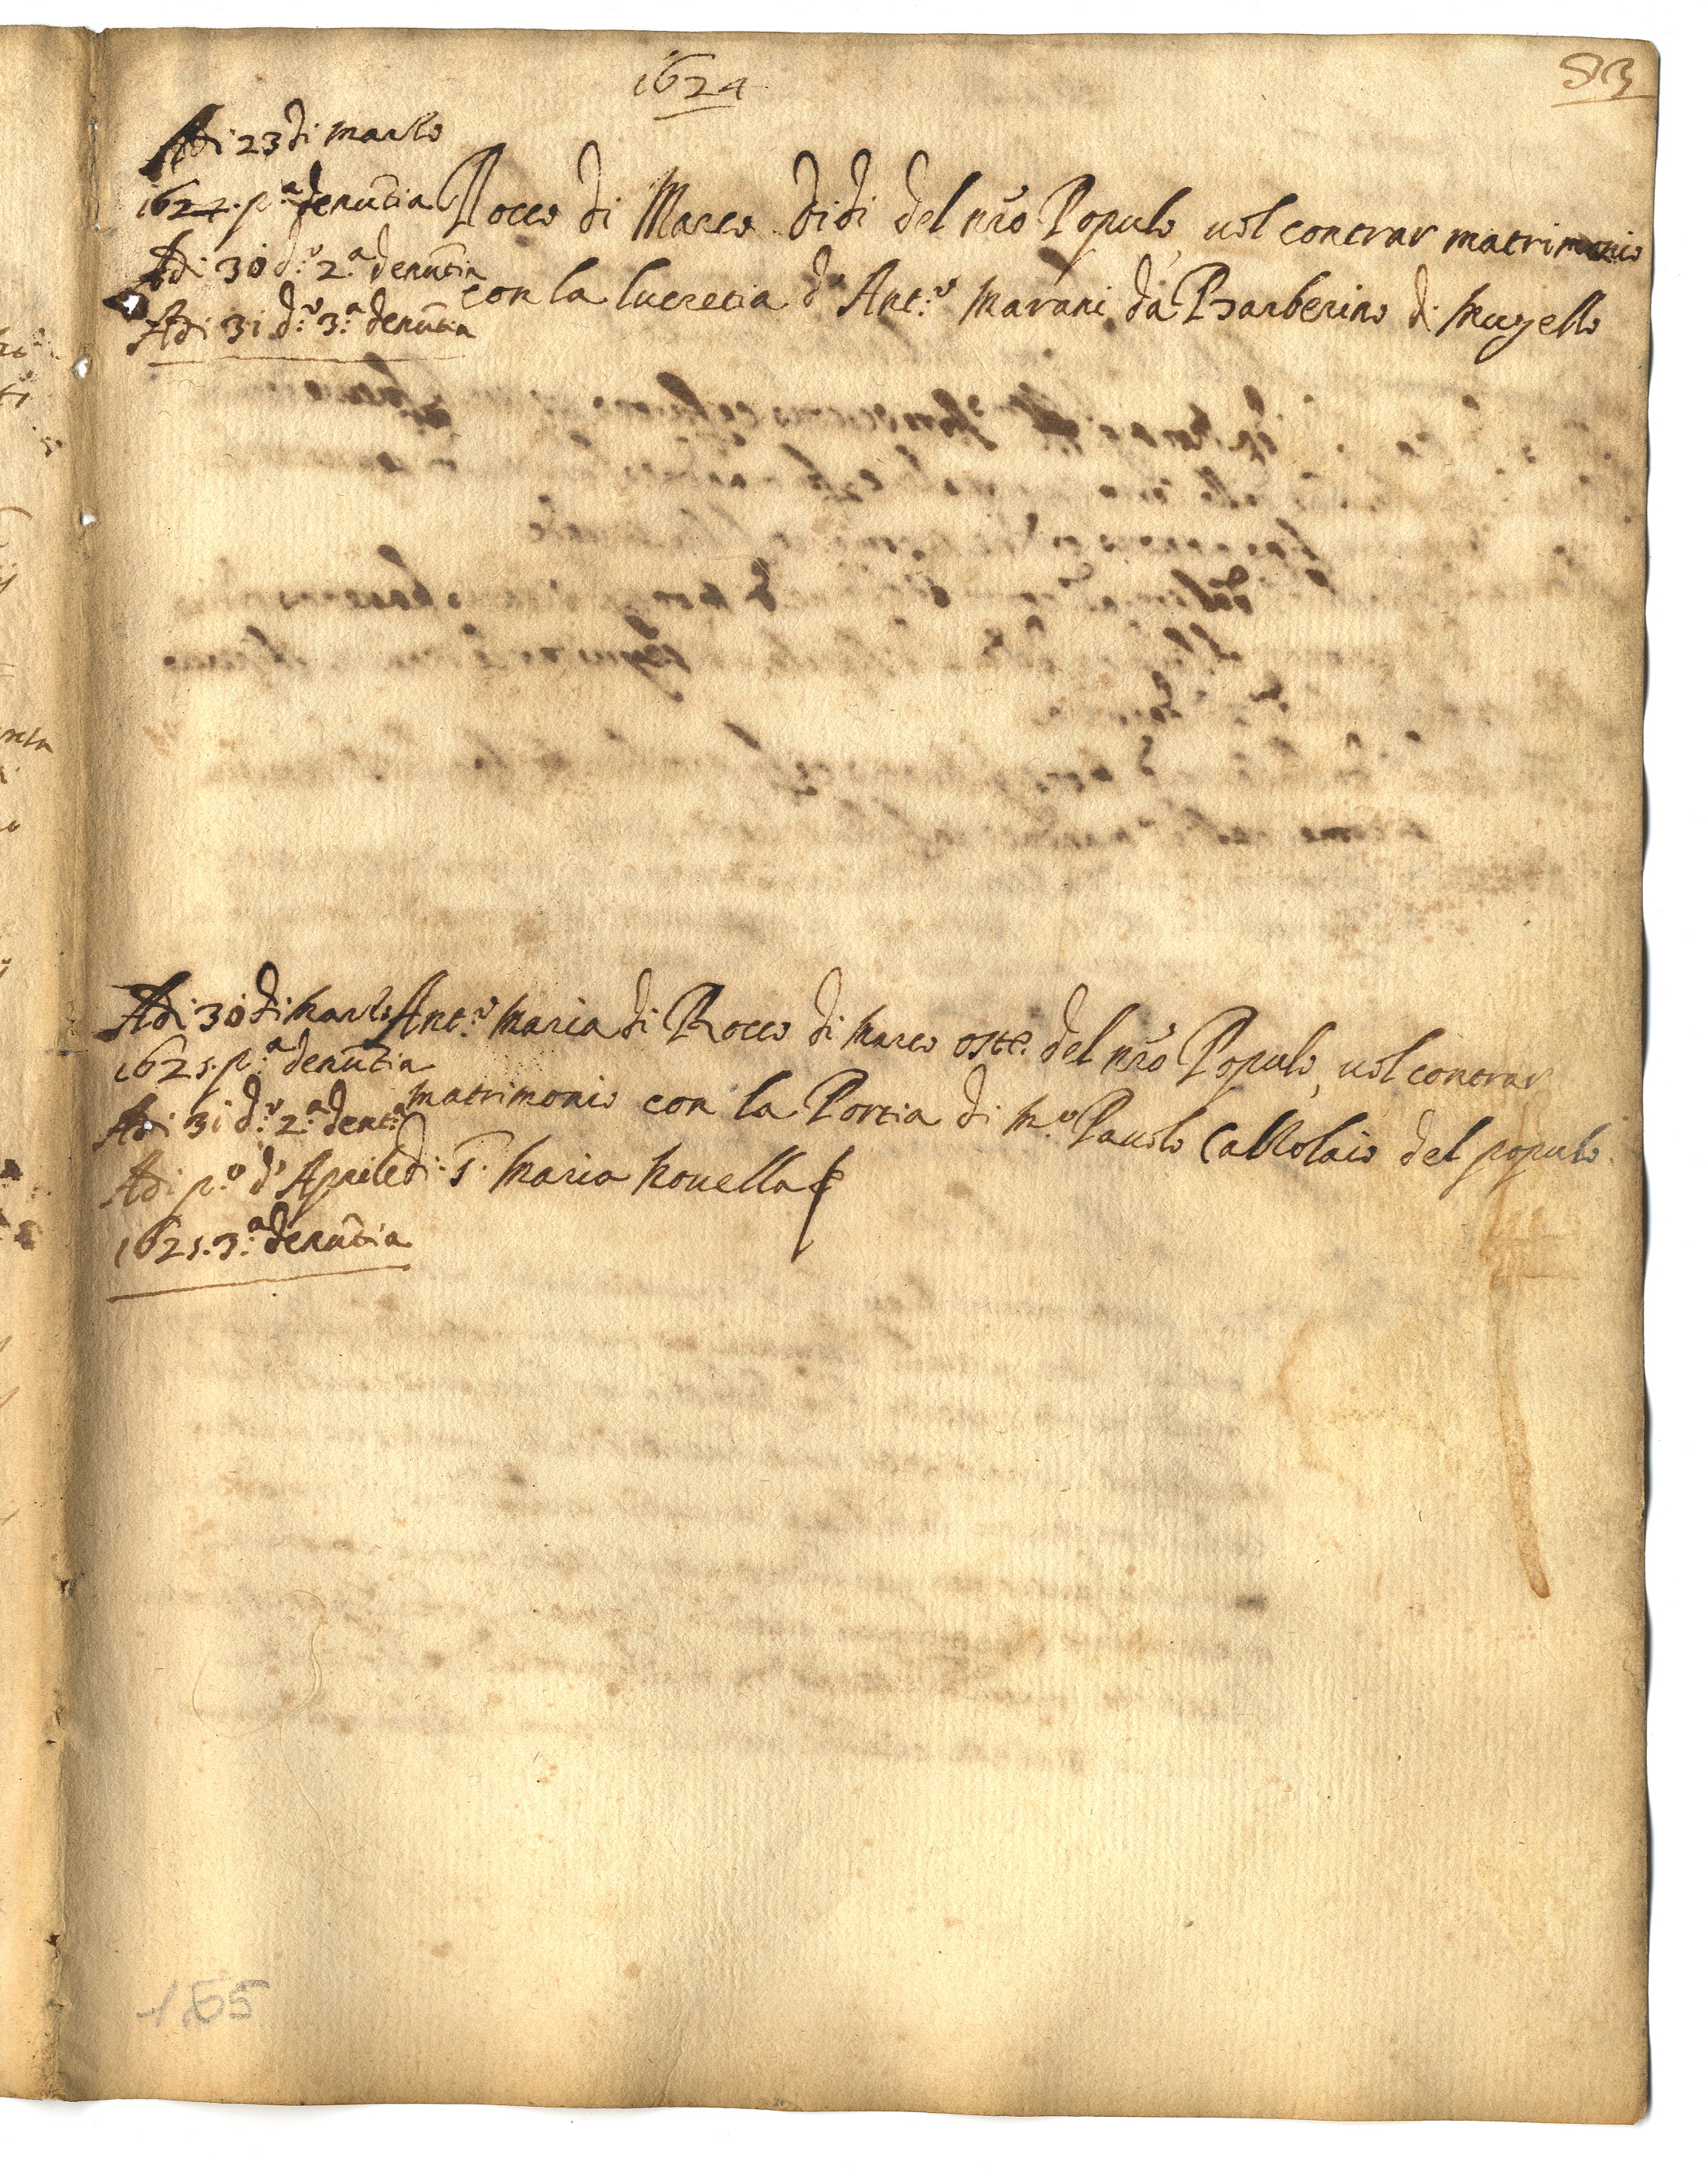 1624
83
Adi 23 di Marzo
1624. p.ª denũtia Rocco di Marco Didi del nrõ Populo, vol contrar matrimonio
Adi 30 d.º 2.ª denũtia
con la Lucretia d' Ant.º Marani da Barberino di Mugello
Adi 31 d.º 3.ª denũtia
Adi 30 di Marzo Ant.º Maria di Rocco di Marco oste del nrõ Populo, vol contrar
1625. p.ª denũtia
matrimonio con la Portia di M.º Pauolo Calzolaio del populo
Adi 31 d.º 2.ª denũt.ª
Adi p.º d' Aprile di S. Maria Novella
1625. 3.ª denũtia
165